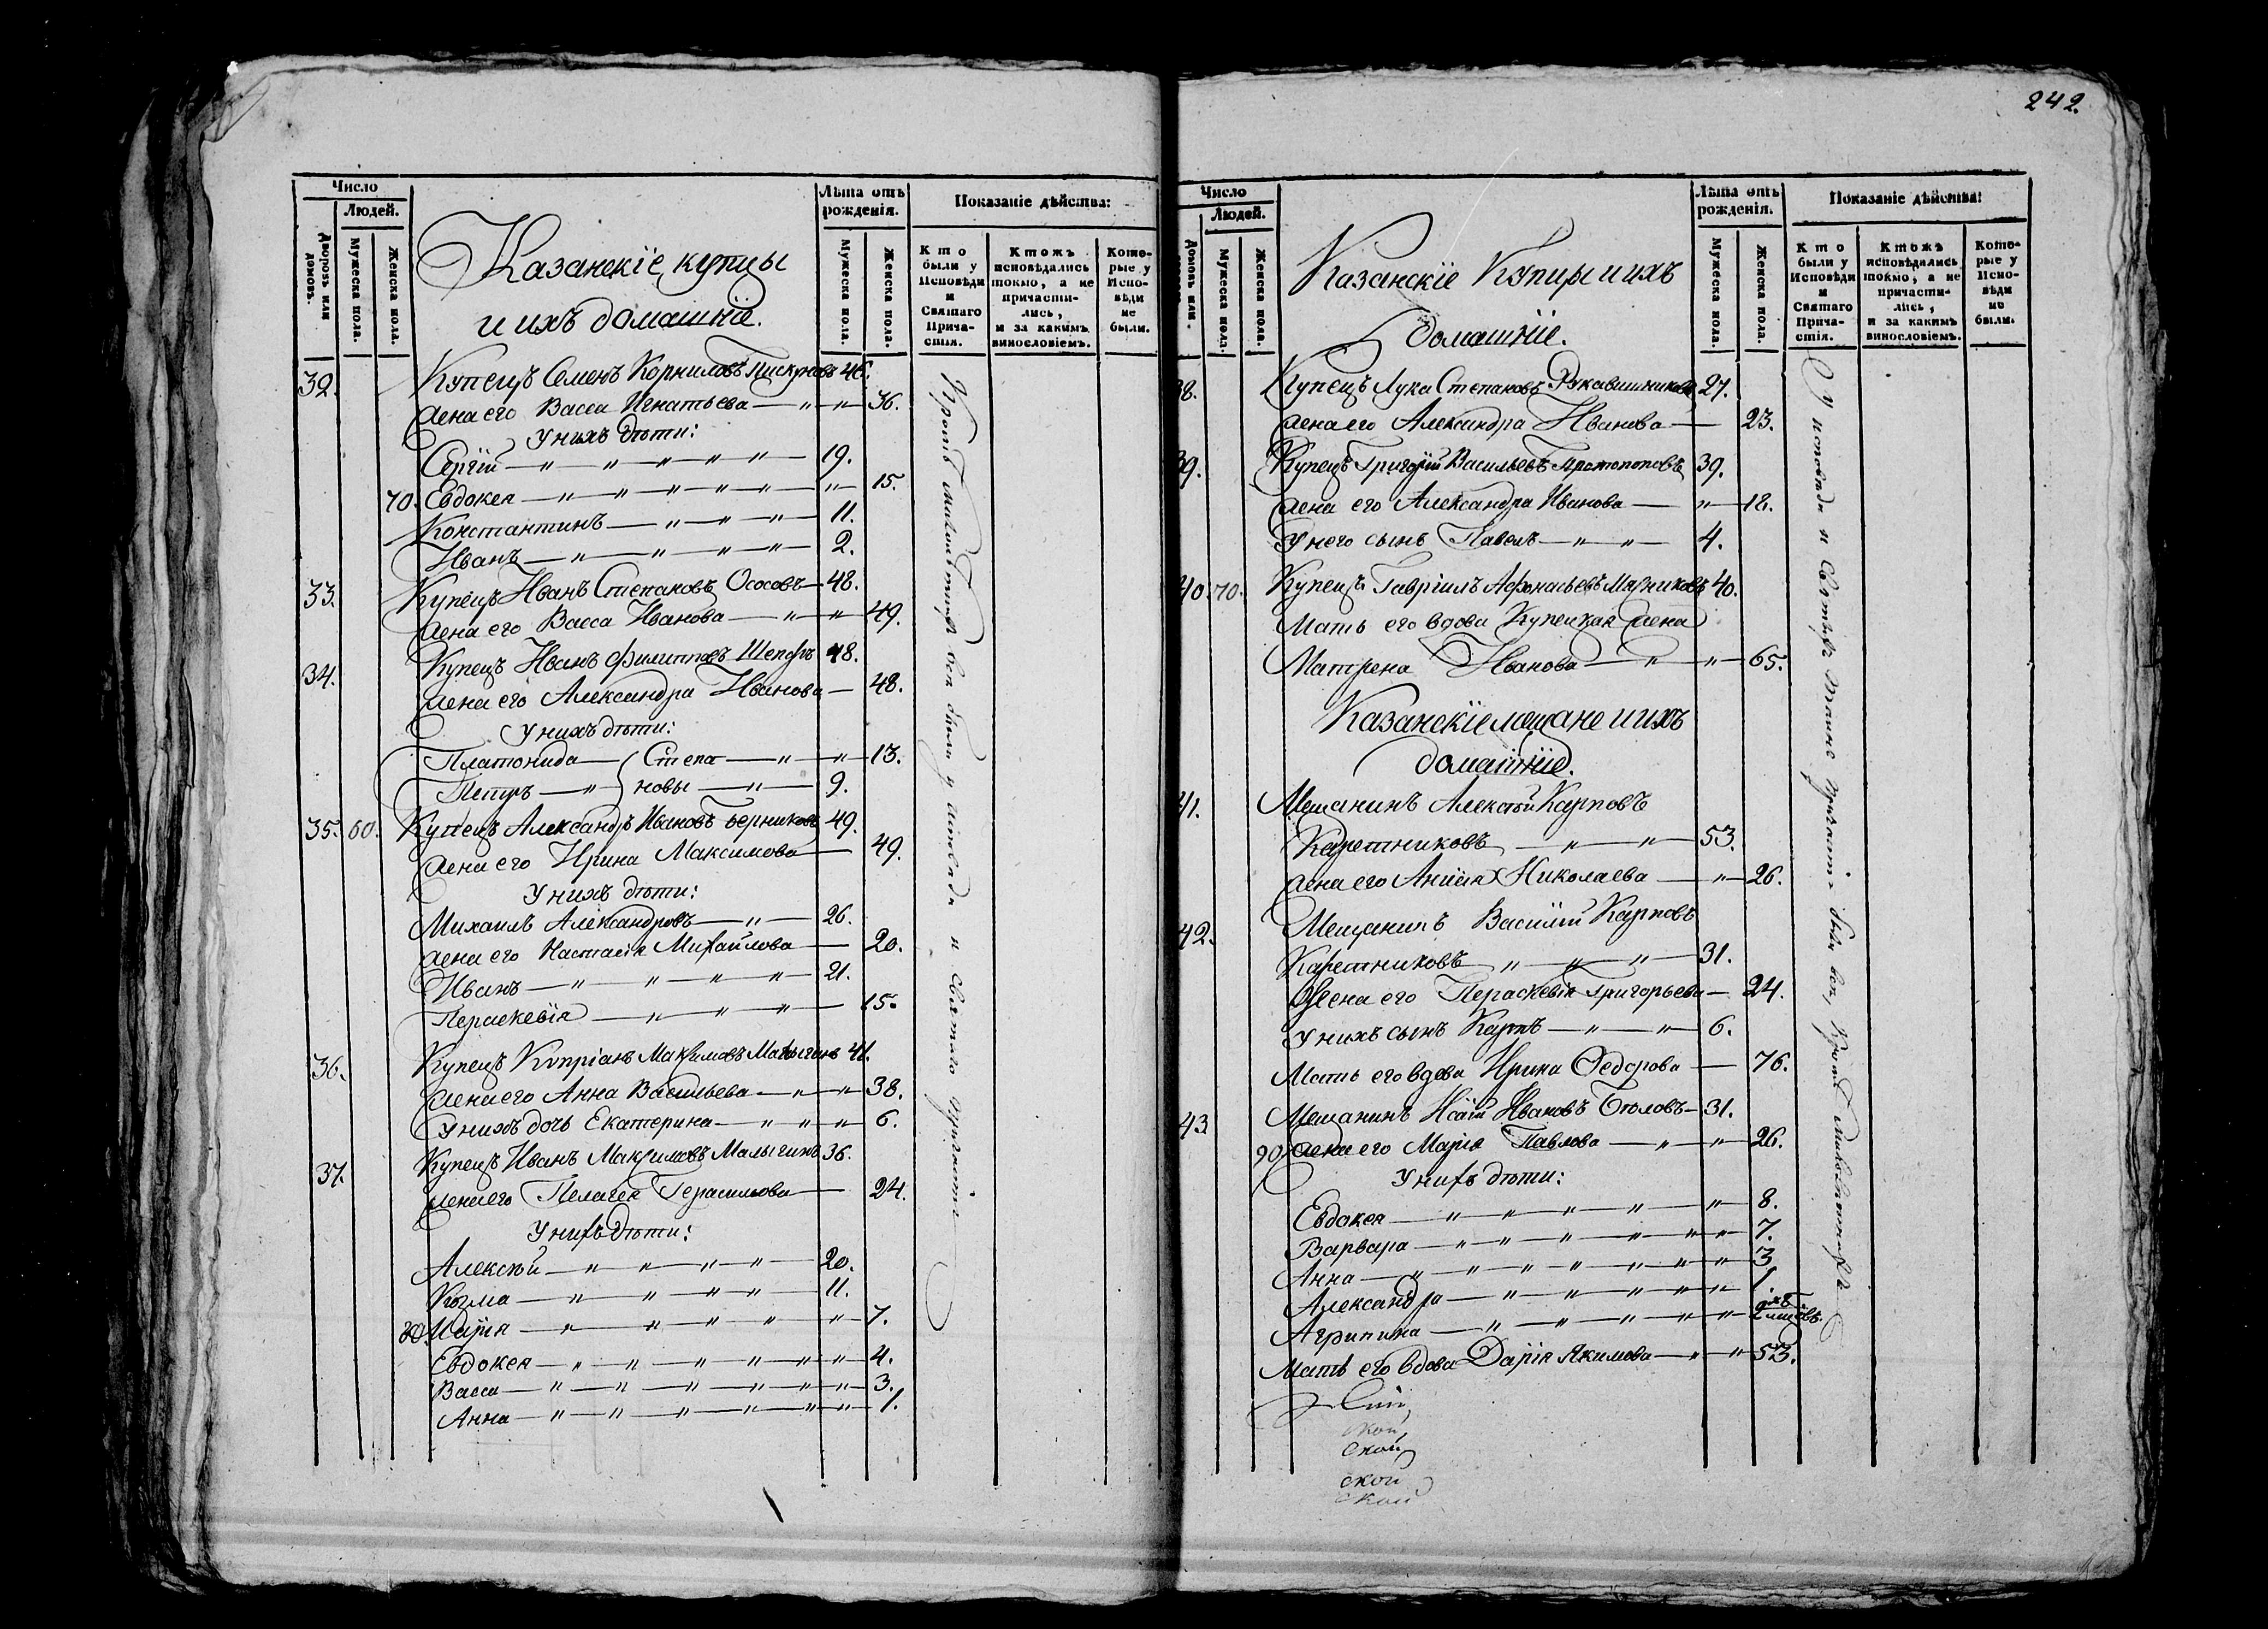 Число
Людей.
Дворовъ или домовъ.
Мужеска пола.
Женска пола.
Лѣта отъ рожденія.
Мужеска пола.
Женска пола.
Показаніе дѣйства:
Кто были у Исповѣди и Святаго Причастія.
Ктожъ исповѣдались токмо, а не причастились, и за какимъ винословіемъ.
Которые у Исповѣди не были.
Казанскіе купцы
и ихъ домашніе.
32. Купецъ Семенъ Корниловъ 46.
Жена его Васса Игнатьева — " — " — 36.
У нихъ дѣти:
Сергій — " — " — " — " — " — 19.
70. Евдокея — " — " — " — " — " — " — 15.
Константинъ — " — " — " — 11.
Иванъ — " — " — " — " — 2.
33. Купецъ Иванъ Степановъ Ососовъ — 48.
Жена его Васса Иванова — " — " — 49.
34. Купецъ Иванъ Филипповъ 48.
Жена его Александра Иванова — 48.
У нихъ дѣти:
Платонида — Степа — " — " — 13.
Петръ — " — новы — " — 9.
35. 60. Купецъ Александръ Ивановъ 49.
Жена его Ирина Максимова — 49.
У нихъ дѣти:
Михаилъ Александровъ — " — 26.
Жена его Настасія Михайлова — 20.
Иванъ — " — " — " — " — 21.
Пераскевія — " — " — " — 15.
36. Купецъ Кипріанъ Максимовъ Малыгинъ 41.
Жена его Анна Васильева — " — " — 38.
У нихъ дочь Екатерина — " — " — " — 6.
37. Купецъ Иванъ Максимовъ Малыгинъ 36.
Жена его Пелагея Герасимова — 24.
У нихъ дѣти:
Алексѣй — " — " — " — " — 20.
Козма — " — " — " — " — 11.
80. Марія — " — " — " — " — " — 7.
Евдокея — " — " — " — " — " — " — 4.
Васса — " — " — " — " — " — " — 3.
Анна — " — " — " — " — " — " — 1.
Кромѣ малолѣтныхъ всѣ были у исповѣди и святаго причастія
242.
Число
Людей.
домовъ или
Мужеска пола.
Женска пола.
Лѣта отъ рожденія.
Мужеска пола.
Женска пола.
Показаніе дѣйства:
Кто были у Исповѣди и Святаго Причастія.
Ктожъ исповѣдались токмо, а не причастились, и за какимъ винословіемъ.
Которые у Исповѣди не были.
Казанскіе Купцы и ихъ
домашніе.
38. Купецъ Лука Степановъ Рукавишниковъ 27.
Жена его Александра Иванова — 23.
39. Купецъ Григорій Васильевъ Протопоповъ 39.
Жена его Александра Иванова — " — 18.
У него сынъ Павелъ — " — " — 4.
40. 70. Купецъ Гавріилъ Афонасьевъ 40.
Мать его вдова Купецкая жена
Матрена Иванова — " — " — 65.
Казанскіе мещане и ихъ
домашніе.
41. Мещанинъ Алексѣй Карповъ
Каретниковъ — " — " — 53.
Жена его Анисія Николаева — " — 26.
42. Мещанинъ Василій Карповъ
Каретниковъ — " — " — " — 31.
Жена его Пераскевія Григорьева — 24.
У нихъ сынъ Карпъ — " — " — 6.
Мать его вдова Ирина Федорова — 76.
43. Мещанинъ Исай Ивановъ Бѣловъ — 31.
90. Жена его Марія Павлова — " — " — 26.
У нихъ дѣти:
Евдокея — " — " — " — " — " — 8.
Варвара — " — " — " — " — " — " — 7.
Анна — " — " — " — " — " — " — 3
Александра — " — " — " — " — " — 1.
Агрипина — " — " — " — " — "
Мать его вдова Дарія Якимова — " — " — 53.
ской
ской
ской
ской
У исповѣди и Святыхъ Таинъ причастія были всѣ, кромѣ малолѣтныхъ